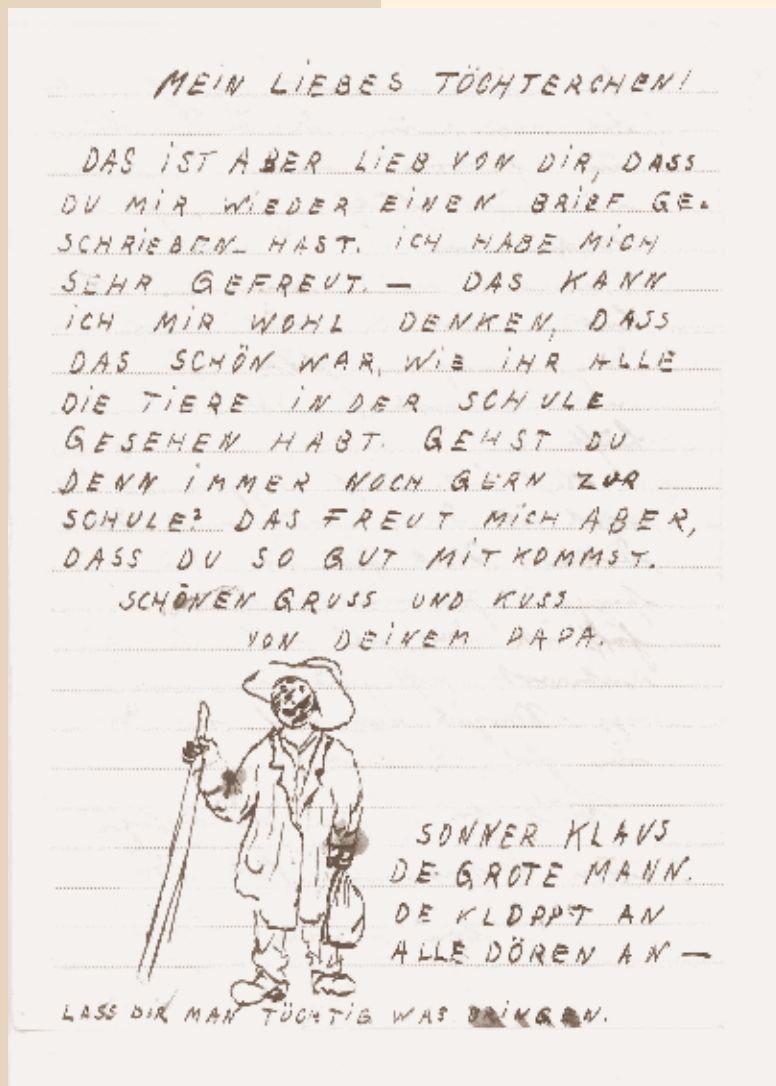 MEIN LIEBES TÖCHTERCHEN!
DAS IST ABER LIEB VON DIR, DASS
DU MIR WIEDER EINEN BRIEF GE-
SCHRIEBEN HAST. ICH HABE MICH
SEHR GEFREUT. — DAS KANN
ICH MIR WOHL DENKEN, DASS
DAS SCHÖN WAR, WIE IHR ALLE
DIE TIERE IN DER SCHULE
GESEHEN HABT. GEHST DU
DENN IMMER NOCH GERN ZUR
SCHULE? DAS FREUT MICH ABER,
DASS DU SO GUT MITKOMMST.
SCHÖNEN GRUSS UND KUSS
VON DEINEM PAPA.
SÖNNER KLAUS
DE GROTE MANN.
DE KLOPPT AN
ALLE DÖREN AN —
LASS DIR MAN TÜCHTIG WAS BRINGEN.